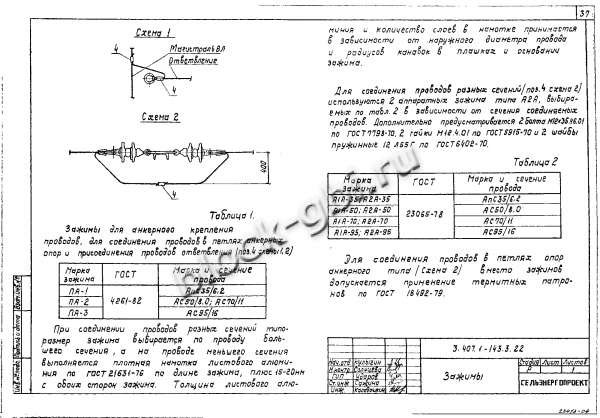 37
Схема 1
4
Магистраль ВЛ
Ответвление
4
Схема 2
400
4
Таблица 1.
Зажимы для анкерного крепления
проводов, для соединения проводов в петлях анкерных
опор и присоединения проводов ответвления /поз.4 схемы 1,2/
Марка зажима
ГОСТ
Марка и сечение провода
ПА-1
АпС35/6.2
ПА-2
4261-82
АС50/8.0; АС70/11
ПА-3
АС95/16
При соединении проводов разных сечений типо-
размер зажима выбирается по проводу боль-
шего сечения, а на проводе меньшего сечения
выполняется плотная намотка листового алюми-
ния по ГОСТ 21631-76 по длине зажима, плюс 15-20мм
с обоих сторон зажима. Толщина листового алю-
миния и количество слоев в намотке принимается
в зависимости от наружного диаметра провода
и радиусов канавок в плашках и основании
зажима.
Для соединения проводов разных сечений /поз.4 схема 2/
используются 2 аппаратных зажима типа А2А, выбира-
емых по табл. 2 в зависимости от сечения соединяемых
проводов. Дополнительно предусматривается 2 болта
по ГОСТ 7798-70, 2 гайки по ГОСТ 5915-70 и 2 шайбы
пружинные по ГОСТ 6402-70.
Таблица 2
Марка зажима
ГОСТ
Марка и сечение провода
А1А-35; А2А-35
АпС35/6.2
А1А-50; А2А-50
23065-78
АС50/8.0
А1А-70; А2А-70
АС70/11
А1А-95; А2А-95
АС95/16
Для соединения проводов в петлях опор
анкерного типа /схема 2/ вместо зажимов
допускается применение термитных патро-
нов по ГОСТ 18492-79.
3.407.1-143.3.22
Зажимы
Стадия Лист Листов
Р 1
СЕЛЬЭНЕРГОПРОЕКТ
Нач.отд.
ГИП Ударов
block-gbi.ru